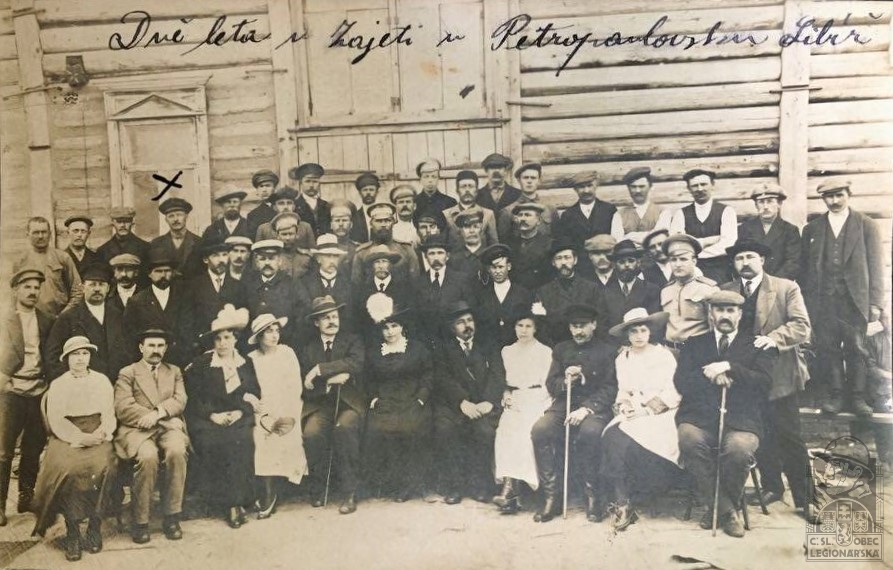 Dvě leta v Zajeti v Petropavlovsku Sibiř
Č. SL. OBEC
LEGIONÁŘSKÁ